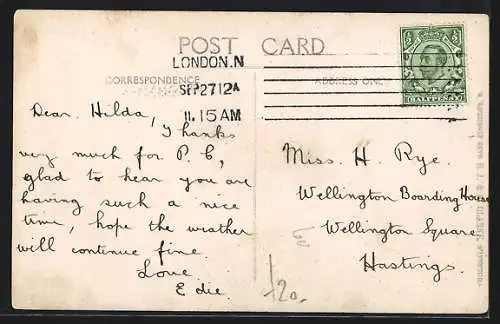 POST CARD
LONDON.N
CORRESPONDENCE
ADDRESS ONLY
SP 27 12A
11.15 AM
HALFPENNY
Dear Hilda,
Thanks
very much for P.C,
glad to hear you are
having such a nice
time, hope the weather
will continue fine.
Love
Edie.
Miss H. Rye.
Wellington Boarding House
Wellington Square
Hastings.